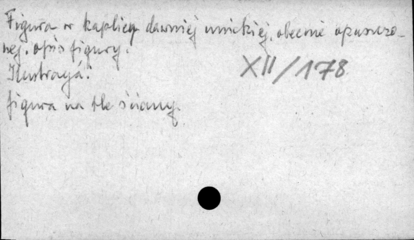 Figura w kaplicy dawniej unickiej, obecnie opuszczo-
nej. opis figury.
Ilustracja:
XII/178
figura na tle ściany.